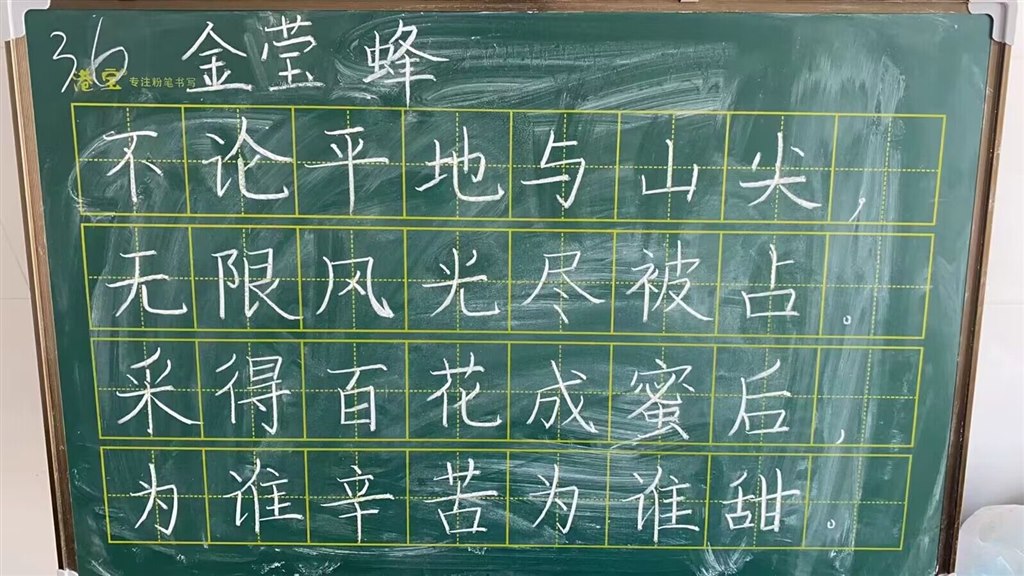 36 金莹 蜂
港宝 专注粉笔书写
不论平地与山尖，
无限风光尽被占。
采得百花成蜜后，
为谁辛苦为谁甜。